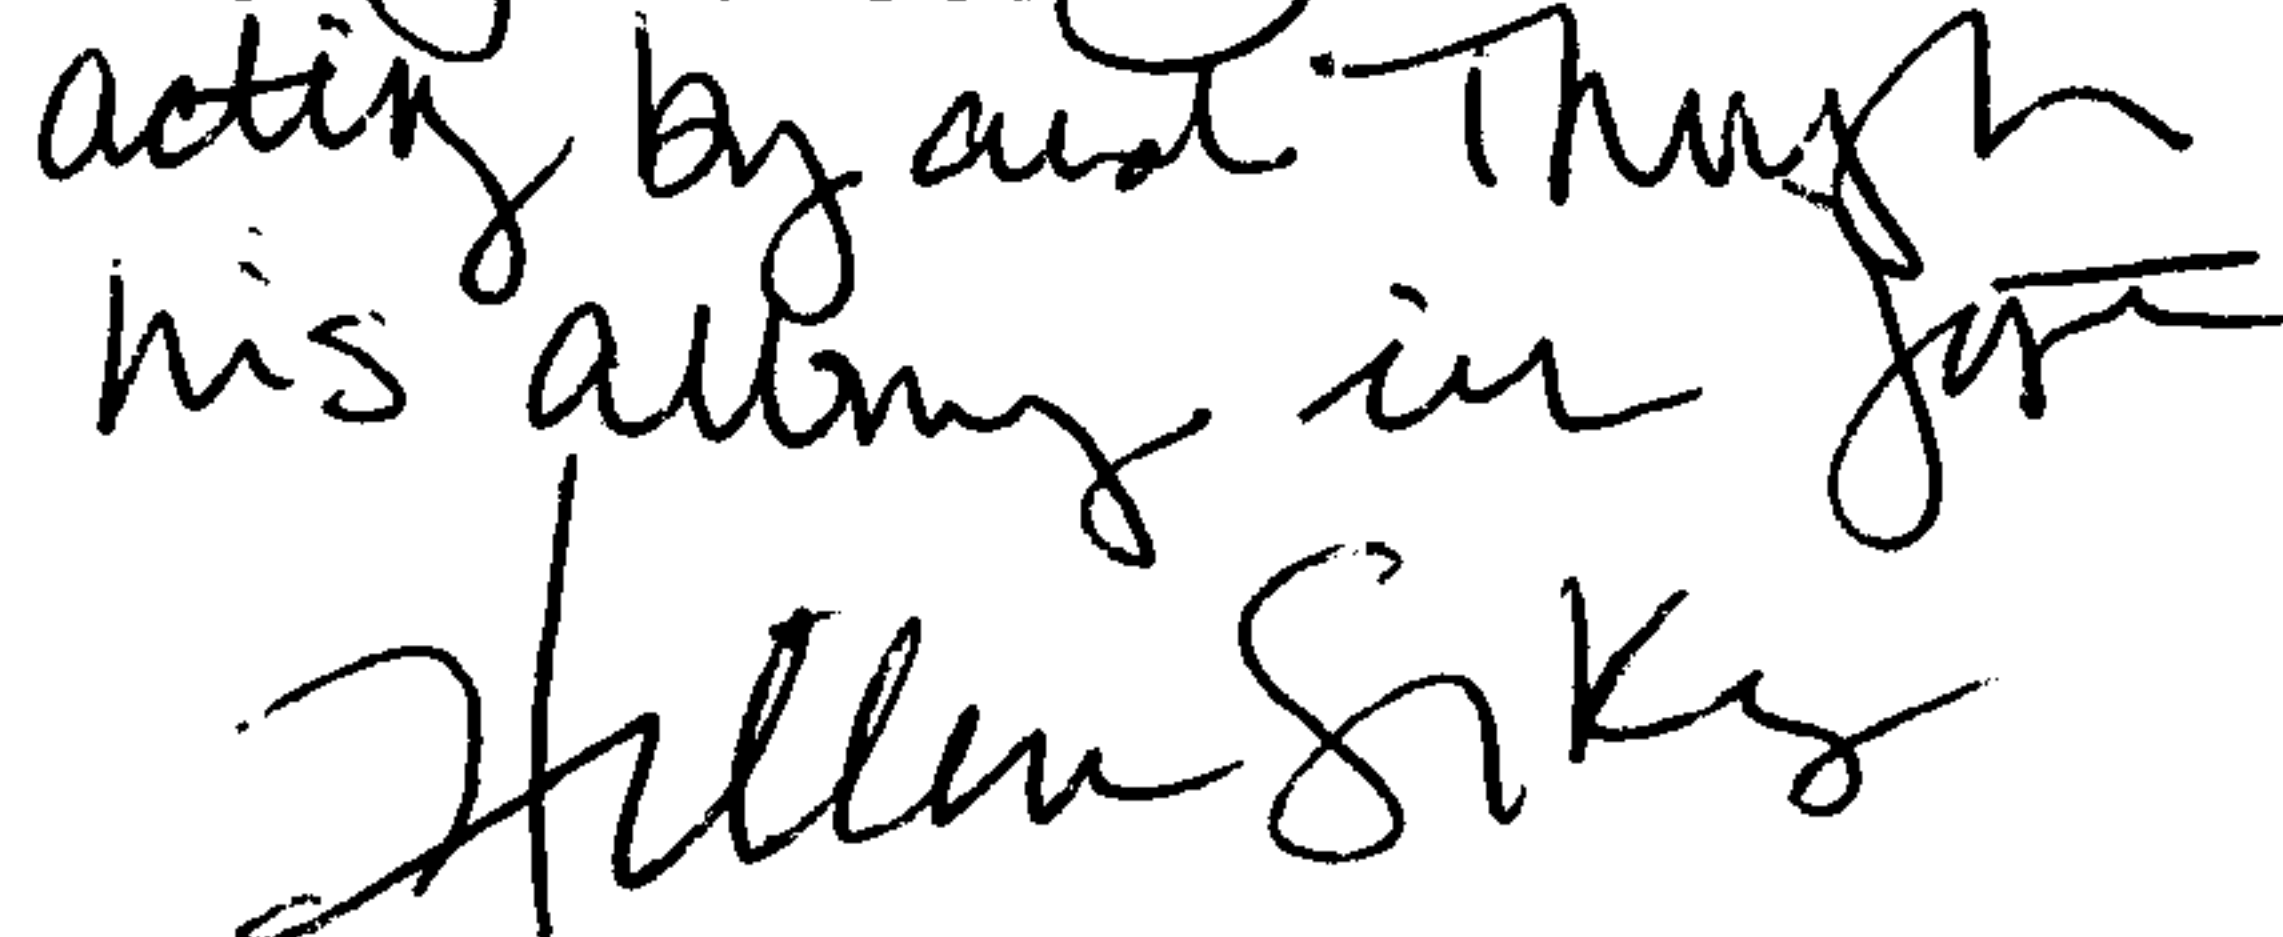 acting by and through
his attorney in fact
Hellen Sikes